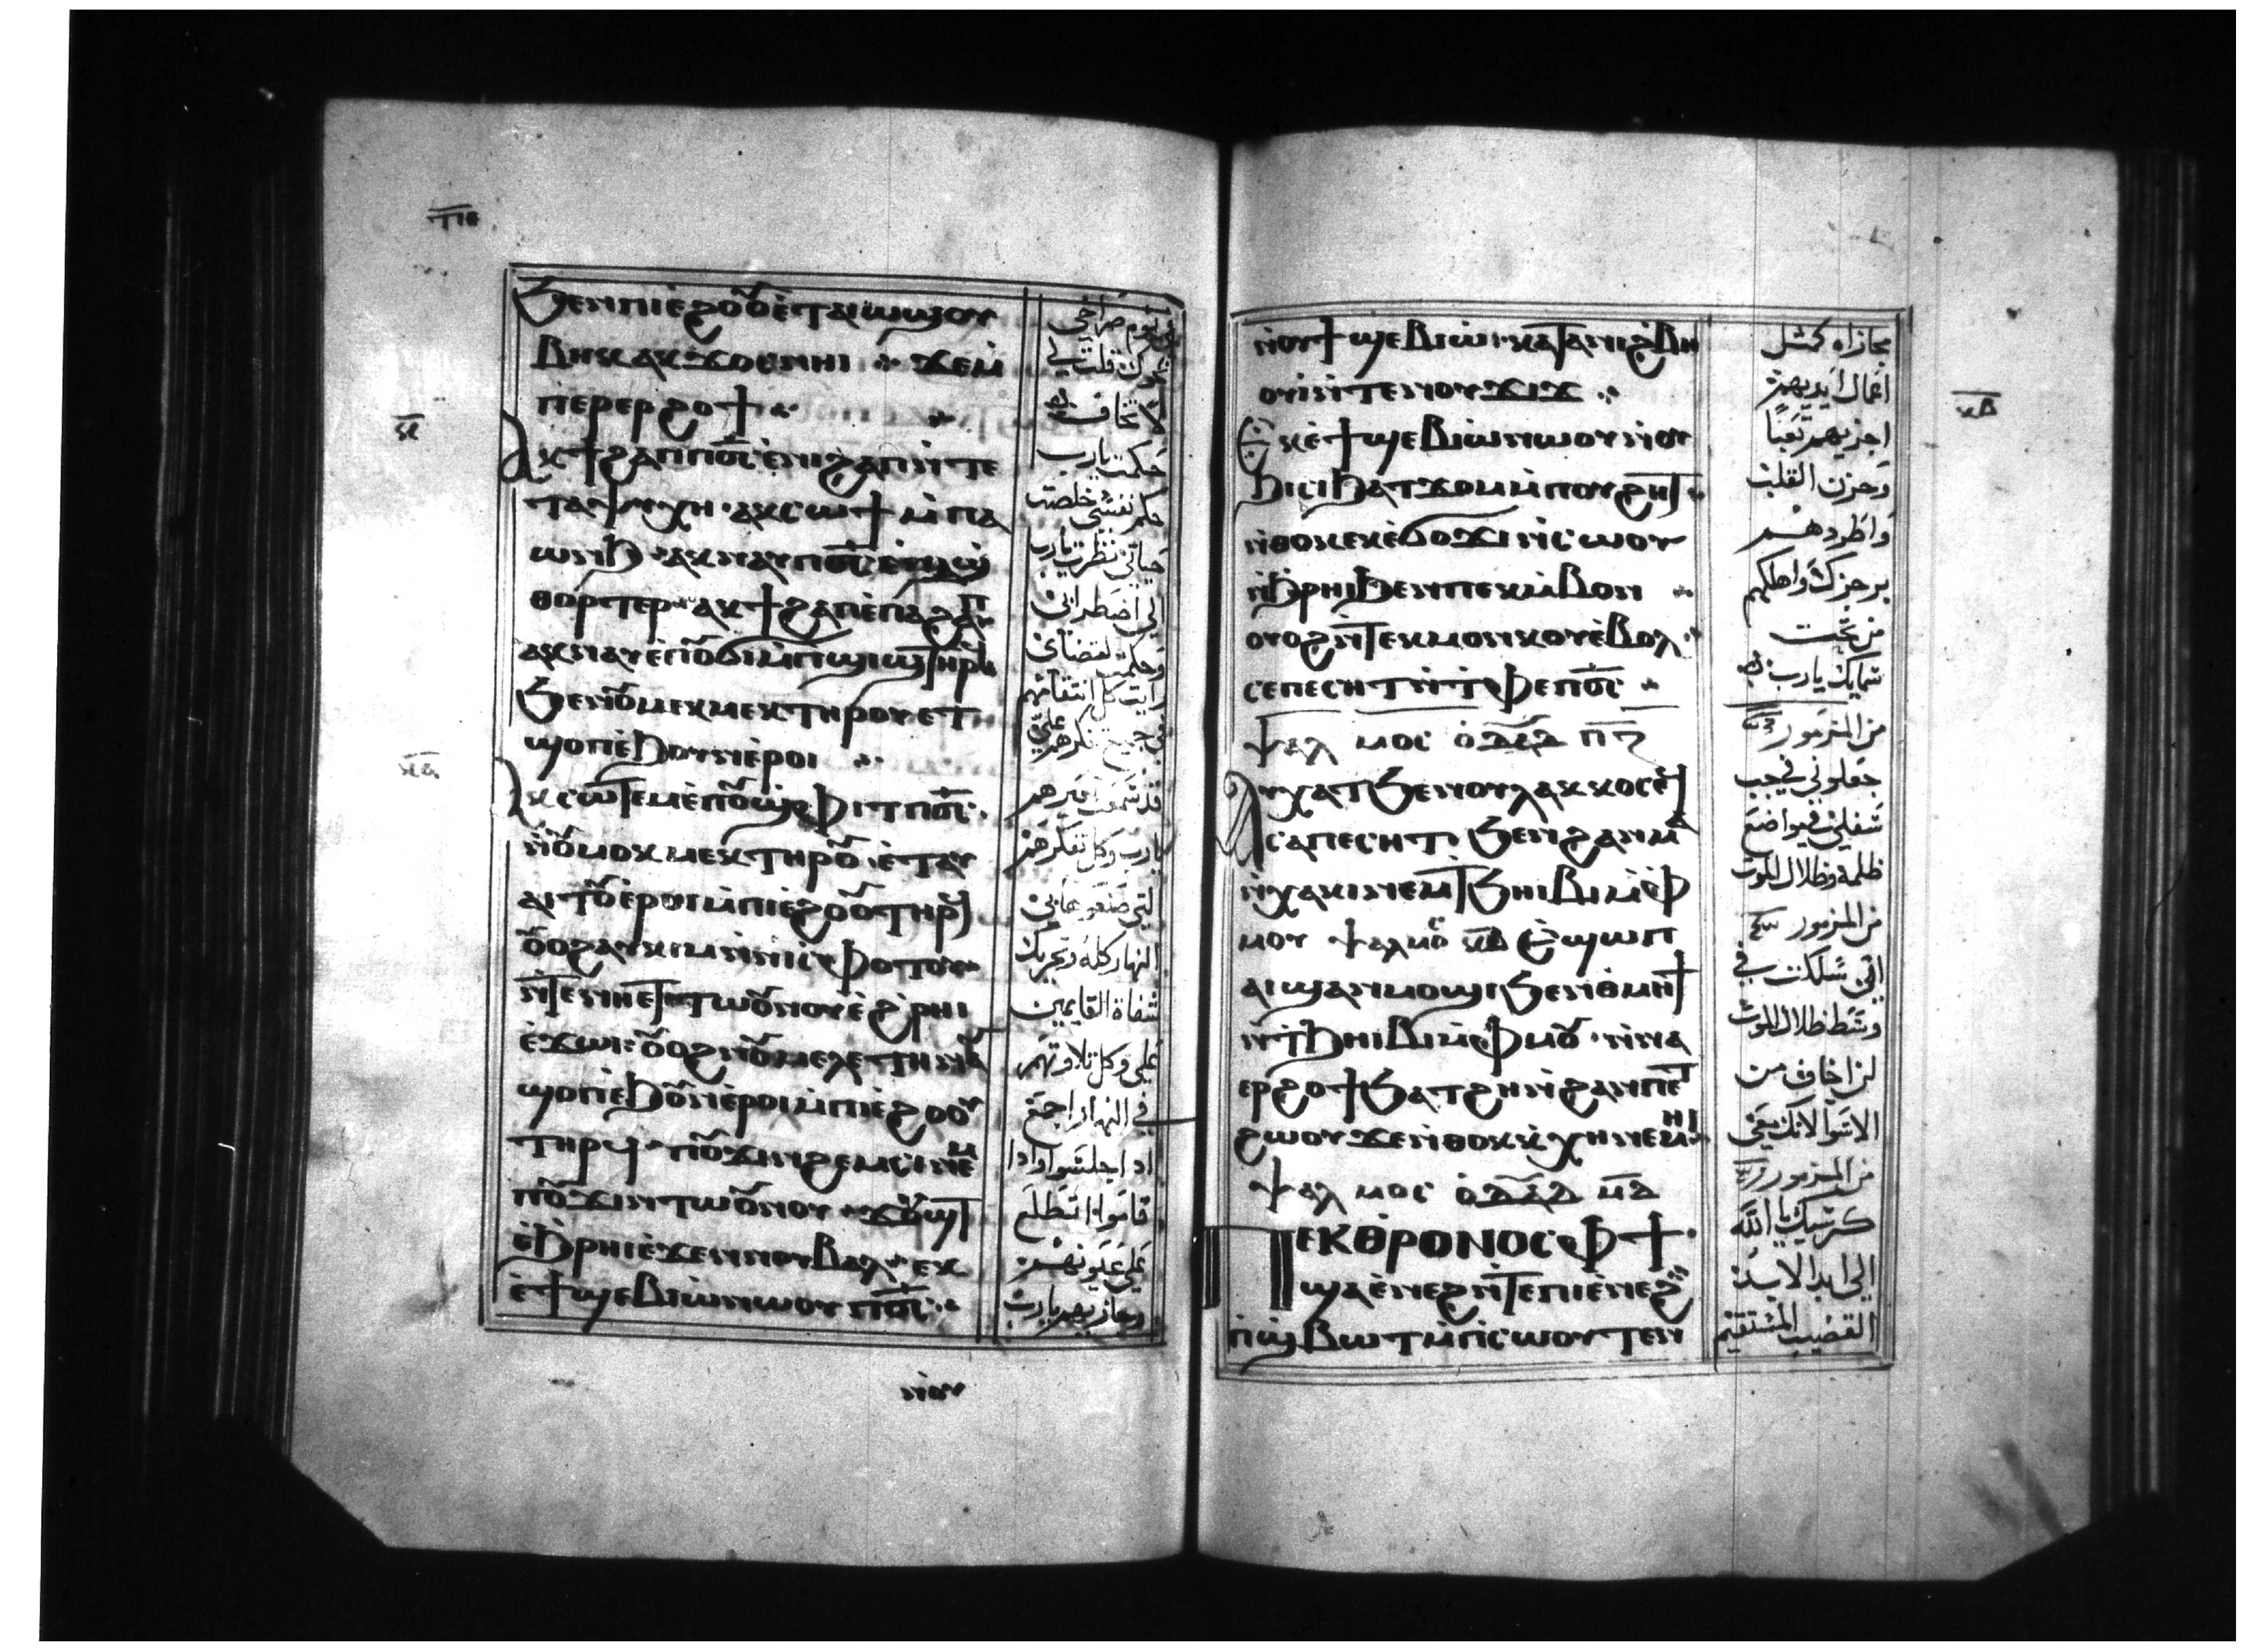 ⲧⲓⲉ
ϧⲉⲛⲡⲓⲉ̀ϩⲟⲟⲩⲉ̀ⲧⲁⲓⲱϣⲟⲩ
ⲃⲏⲕⲁⲕϫⲟⲥⲛⲏⲓ ⲝⲉⲙ̀
ⲡⲉⲣⲉⲣϩⲟϯ
ⲁⲕϯϩⲁⲡⲡⲟ̅ⲥ̅ⲉ̀ⲛⲓϩⲁⲡⲛ̀ⲧⲉ
ⲧⲁⲯⲩⲭⲏ ⲁⲕⲥⲱϯⲙ̀ⲡⲁ
ⲱⲛϧ ⲁⲕⲛⲁⲩⲡⲟ̅ⲥ̅
ⲑⲟⲣⲧⲉⲣ ⲁⲕϯϩⲁⲡⲉ̀ⲡⲁϩⲁⲡ
ⲁⲕⲛⲁⲩⲉ̀ⲡⲟⲩϭⲓⲙ̀ⲡϣⲓϣⲧⲏⲣϥ
ϧⲉⲛⲛⲟⲩⲙⲉⲕⲙⲉⲕⲧⲏⲣⲟⲩⲉⲧ
ϣⲟⲡⲉ̀ϧⲟⲩⲛⲉ̀ⲣⲟⲓ
ⲁⲕⲥⲱⲧⲉⲙⲉ̀ⲡⲟⲩϣⲫⲓⲧⲡⲟ̅ⲥ̅
ⲛ̀ⲟⲩⲙⲟⲕⲙⲉⲕⲧⲏⲣⲟⲩ ⲉ̀ⲧⲁⲩ
ⲁⲓⲧⲟⲩⲉ̀ⲣⲟⲓⲙ̀ⲡⲓⲉ̀ϩⲟⲟⲩⲧⲏⲣϥ
ⲟⲩⲟϩⲁⲩⲕⲓⲙⲛ̀ⲛⲓⲥⲫⲟⲧⲟⲩ
ⲛ̀ⲧⲉⲛⲏⲉⲧⲧⲱⲟⲩⲛⲟⲩⲉ̀ϩ̀ⲣⲏⲓ
ⲉ̀ϫⲱⲓ ⲟⲩⲟϩⲛⲟⲩⲙⲉⲗⲉⲧⲏ
ϣⲟⲡⲉ̀ϧⲟⲩⲛⲉ̀ⲣⲟⲓⲙ̀ⲡⲓⲉ̀ϩⲟⲟⲩ
ⲧⲏⲣϥ ⲡⲟⲩϫⲓⲛϩⲉⲙⲥⲓⲛⲉⲙ
ⲡⲟⲩϫⲓⲛⲧⲱⲟⲩⲛⲟⲩ ϫⲟⲩϣⲧ
ⲉ̀ϧⲣⲏⲓⲉ̀ϫⲉⲛⲛⲟⲩⲃⲁⲗ ⲉⲕ
ⲉ̀ϯϣⲉⲃⲓⲱ̀ⲛⲱⲟⲩⲡⲟ̅ⲥ̅
ⲛ̀ⲟⲩ
لا تخاف
حكمت يارب
حكم نفسي خلصت
حياتي نظرت يارب
الي اضطرابي
رايت كل انتقامهم
يارب وكل تفكرهم
النهار كله وتحريك
شفاة القايمين
علي وكل تلاوتهم
في النهار اجمع
اذا جلسوا واذا
قاموا اتطلع
علي عيونهم
وجازيهم يارب
ⲛ̀ⲟⲩϯϣⲉⲃⲓⲱ̀ ⲕⲁⲧⲁⲛⲓϩⲃⲏ
ⲟⲩⲓ̀ⲛ̀ⲧⲉⲛⲟⲩϫⲓϫ
ⲉⲕⲉ̀ϯϣⲉⲃⲓⲱ̀ⲛⲱⲟⲩⲛ̀ⲟⲩ
ϧⲓⲥⲓϧⲁⲧϫⲟⲙⲙ̀ⲡⲟⲩϩⲏⲧ
ⲛ̀ⲑⲟⲕⲉⲕⲉ̀ϭⲟϫⲓⲛ̀ⲥⲱⲟⲩ
ⲛ̀ϧⲣⲏⲓϧⲉⲛⲡⲉⲕⲙ̀ⲃⲟⲛ
ⲟⲩⲟϩⲛ̀ⲧⲉⲕⲙⲟⲛⲕⲟⲩⲉ̀ⲃⲟⲗ
ⲥⲉⲡⲉⲥⲏⲧⲛ̀ⲧ̀ⲫⲉⲡⲟ̅ⲥ̅
ⲯⲁⲗ ⲙⲟⲥ ⲟ̀ⲇⲁ̅ⲇ̅ ⲡ̅ⲍ̅
ⲁⲩⲭⲁⲧϧⲉⲛⲟⲩⲗⲁⲕⲕⲟⲥⲉϥ
ⲥⲁⲡⲉⲥⲏⲧ ϧⲉⲛϩⲁⲛⲙⲁ
ⲛ̀ⲭⲁⲕⲓⲛⲉⲙⲧϧⲏⲓⲃⲓⲙ̀ⲫ
ⲙⲟⲩ ⲯⲁⲗⲙⲟ ⲕ̅ⲃ̅ ⲉ̀ϣⲱⲡ
ⲁⲓϣⲁⲛⲙⲟϣⲓϧⲉⲛⲑ̀ⲙⲏϯ
ⲛ̀ⲧ̀ϧⲏⲓⲃⲓⲙ̀ⲫⲙⲟⲩ ⲛ̀ⲛⲁ
ⲉⲣϩⲟϯϧⲁⲧϩⲏⲛ̀ϩⲁⲛⲡⲉⲧ
ϩⲱⲟⲩϫⲉⲛ̀ⲑⲟⲕⲕ̀ⲭⲏⲛⲉⲙⲏⲓ
ⲯⲁⲗ ⲙⲟⲥ ⲟ̀ⲇⲁ̅ⲇ̅ ⲙ̅ⲇ̅
ⲡⲉⲕⲑ̀ⲣⲟⲛⲟⲥⲫϯ
ϣⲁⲉ̀ⲛⲉϩⲛ̀ⲧⲉⲡⲓⲉ̀ⲛⲉϩ
ⲡ̀ϣⲃⲱⲧⲙ̀ⲡⲥⲱⲟⲩⲧⲉⲛ
مجازاه كمثل
اعمال ايديهم
اجزيهم تعبا
وحزن القلب
واطردهم
برجزك واهلكهم
من تحت
سمايك يارب
من المزمور
جعلوني في جب
سفلي في مواضع
ظلمة وظلال الموت
من المزمور
اني سلكت في
وسط ظلال الموت
لن اخاف من
الاسوا لانك معي
من المزمور
كرسيك يا الله
الي ابد الابد
القضيب المستقيم